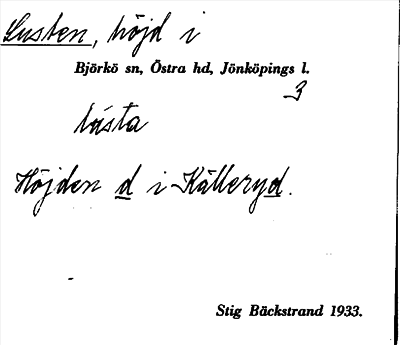 Lusten, höjd i
Björkö sn, Östra hd, Jönköpings l.
3
lústa
Höjden d i Källeryd.
Stig Bäckstrand 1933.